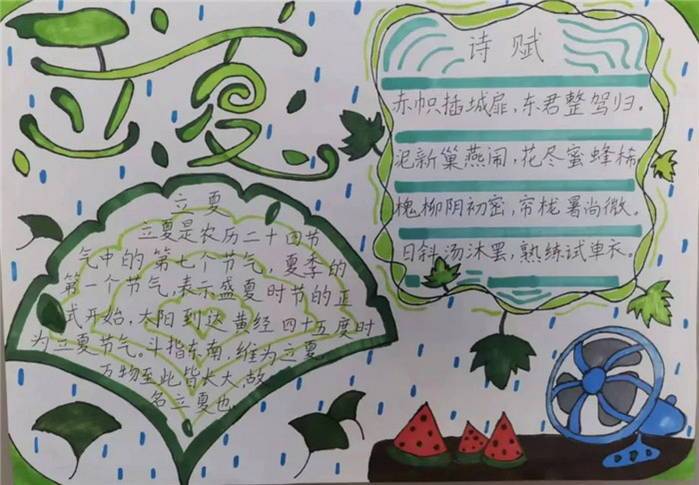 立夏
诗赋
赤帜插城扉,东君整驾归。
泥新巢燕闹,花尽蜜蜂稀。
槐柳阴初密,帘栊暑尚微。
日斜汤沐罢,熟练试单衣。
立夏
立夏是农历二十四节
气中的第七个节气,夏季的
第一个节气,表示盛夏时节的正
式开始,太阳到达黄经四十五度时
为立夏节气。斗指东南,维为立夏。
万物至此皆长大,故
名立夏也。